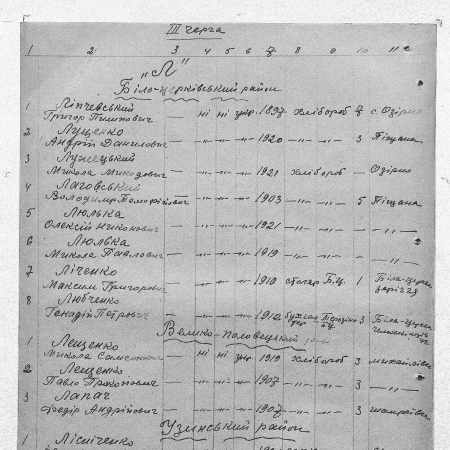 III черга
1 2 3 4 5 6 7 8 9 10 11
"Л"
Біло-церківський район
1 Ліпчевський
Григор Пилипович — ні ні укр. 1897 хлібороб 7 с. Озірно
2 Луценко
Андрій Данилович — -"- -"- -"- 1920 -"- -"- 3 Піщана
3 Лужецький
Микола Микодович — -"- -"- -"- 1921 хлібороб — Озірно
4 Лаговський
Володимир — -"- -"- -"- 1903 -"- -"- 5 Піщана
5 Люлька
Олексій Никонович — -"- -"- -"- 1921 -"- -"- - -"-
6 Люлька
Микола Павлович — -"- -"- -"- 1919 -"- -"- - -"-
7 Ліченко
Максим Григорович — -"- -"- -"- 1910 столяр Б.Ц. 1 Біла-Церква
8 Любченко
Генадій Петрович — -"- -"- -"- 1912 3 Біла-Церква
Велико-Половецький район
1 Лещенко
Микола — ні ні укр 1919 хлібороб 3 Михайлівка
2 Лещенко
Павло Прокопович — -"- -"- -"- 1907 -"- -"- 3 -"-
3 Лапач
Федір Андрійович — -"- -"- -"- 1907 -"- -"- 3
Узинський район
1 Лісніченко